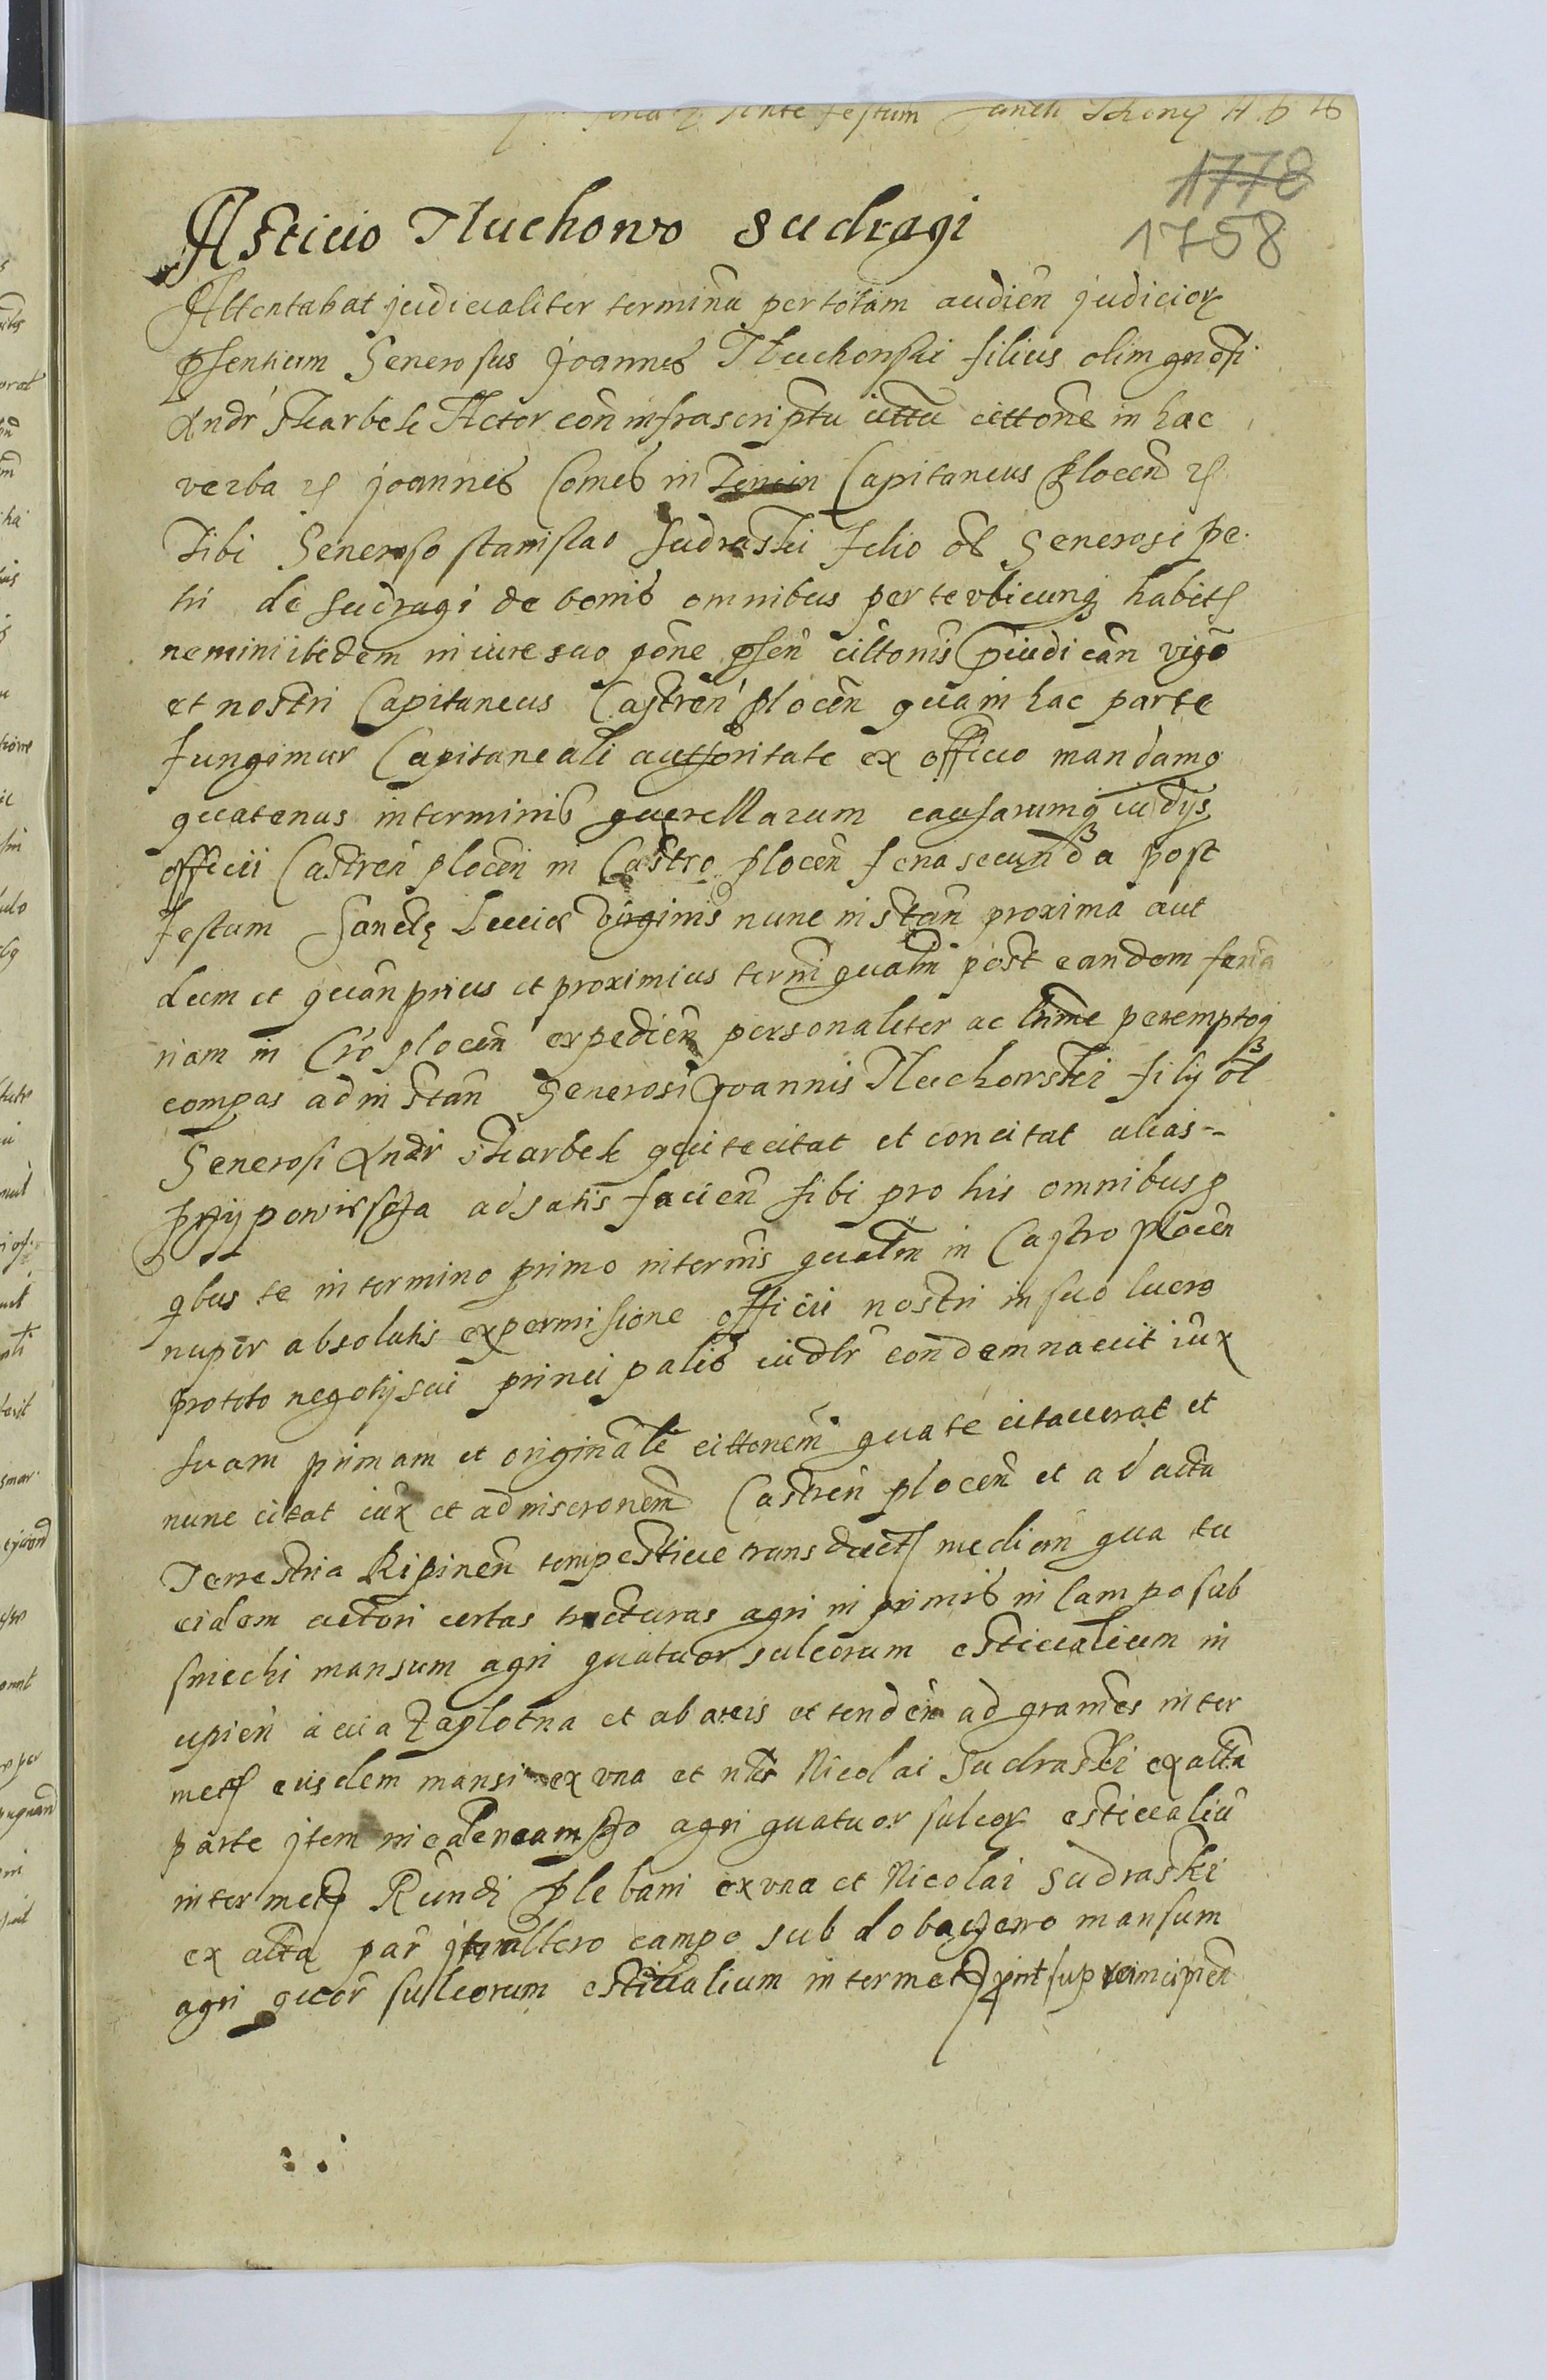 ante festum Sancti
1778
1758
Asticio Tluchowo Sudragi
Attentabat judicialiter terminu per totam audien judicior
psentium Generosus Joannes Tluchonski filius olim gnosi
Andr Skarbek Actor con infrascriptu citta cittone in hac
verba rs Joannes Comes in Tencin Capitaneus Plocen rs
Tibi Generoso Stanislao Sudraski filio ol Generosi Pe
tri de Sudragi de bonis omnibus per te vbicunq habits
nemini ibidem in iure suo pone psen cittonis piudican vigo
et nostri Capitaneus Castren plocen qua in hac parte
fungimur Capitaneali authoritate ex officio mandamq
quatenus in terminis querellarum causarumq iudys
officii Castren plocen in Castro plocen feria secunda post
festum Sanctę Lucia virginis nunc instan proxima aut
dum et quan prius et proximius termi qualm post eandem feria
riam in Cro plocen expedien personaliter ac peremptoq
compas ad instan Generosi Joannis Tluchowski filij ol
Generosi Andr Skarbek qui te citat et concitat alias
przypowieszcza ad satis facien sibi pro his omnibusq
qbus te in termino primo intermis qualm in Castro plocen
nuper absolutis ex permisione officii nostri in suo lucro
pro toto negotij sui principalis iudlr condemnauit iux
suam primam et originale cittonem qua te citauerat et
nunc citat iux et ad niscronem Castren plocen et ad acta
Terrestria Ripinen tempestiue transducts median qua tu
eidem actori certas tracturas agri in primis in Campo sub
smiechi mansum agri quatuor sulcorum estiualium in
cipien a via Zaplotna et ab areis et tenden ad granies inter
mets eiusdem mansi ex vna et ntr Nicolai Sudraski ex alta
parte item in eodem campo agri quatuor sulcor estiualiu
inter mets Rundi plebani ex vna et Nicolai Sudraski
ex alta par item altero campo sub mansum
agri qcor sulcorum estiualium inter mets incipien